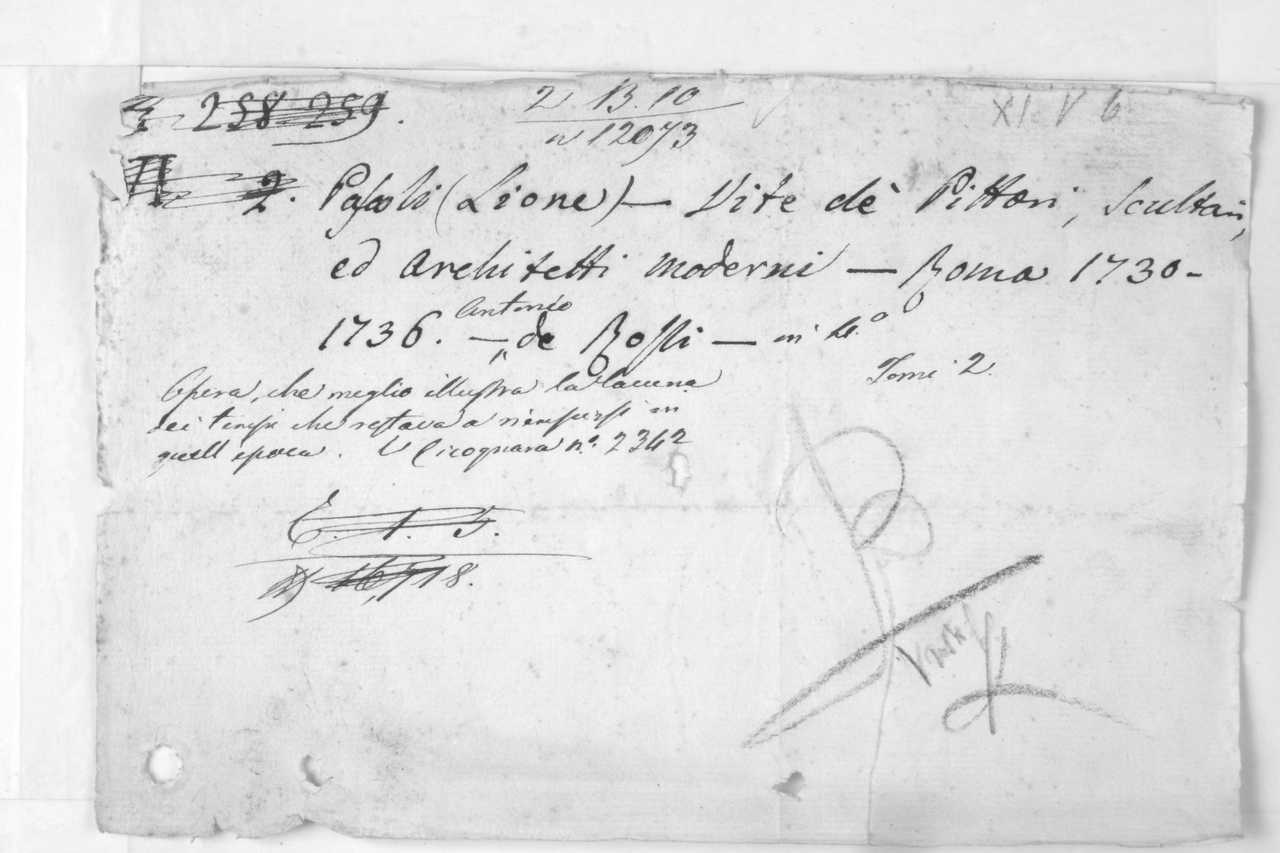 258 259.
2. 13. 10
n 12073
XI. V 6
2. Pascoli (Lione) — Vite dè Pittori, Scultori,
ed Architetti moderni — Roma 1730-
1736. — Antonio de Rossi — in 4.º
Tomi 2.
Opera, che meglio illustra la lacuna
dei tempi che restava a riempirsi in
quell'epoca. V Cicognara nº. 2342
E. 1. 5.
18.